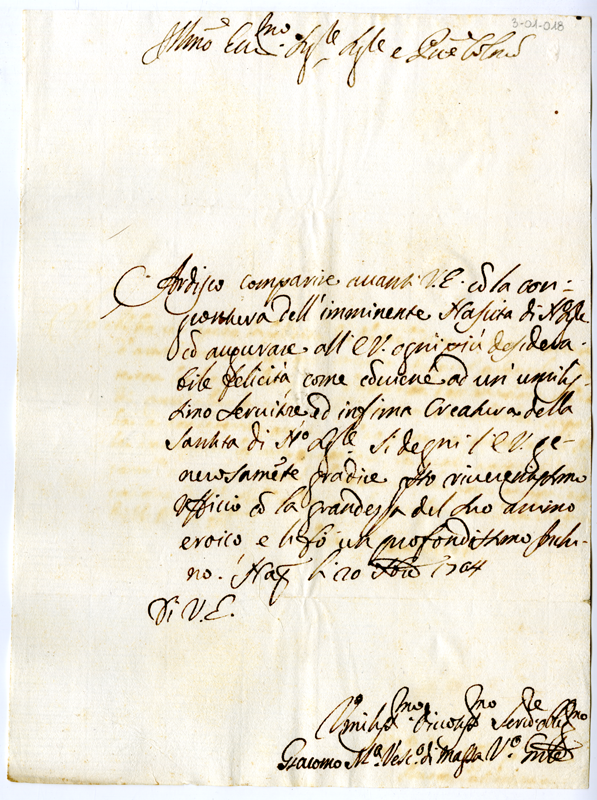 3-01-018
Illmo Ecc.mo Sig.re Sig.re e Pne Colmo
Ardisco comparire avanti V.E. cō la con-
giontura dell'imminente Nascita di N.Sig.re
cō augurare all'E.V. ogni più desidera-
bile felicità, come cōviene ad un' umiliss-
imo servitore, ed infima Creatura della
Santità di N.ro Sig.re. Si degni l'E.V. ge-
nerosamēte gradire qto riverentissmo
Ufficio cō la grandezza del suo animo
eroico e li fò un profondissimo Inchi-
no. Nap. li 20 Xbre 1704
Di V.E.
Umiliss.mo Serv.re oblig.mo
Giacomo M.a Vesc.o di Massa V.o